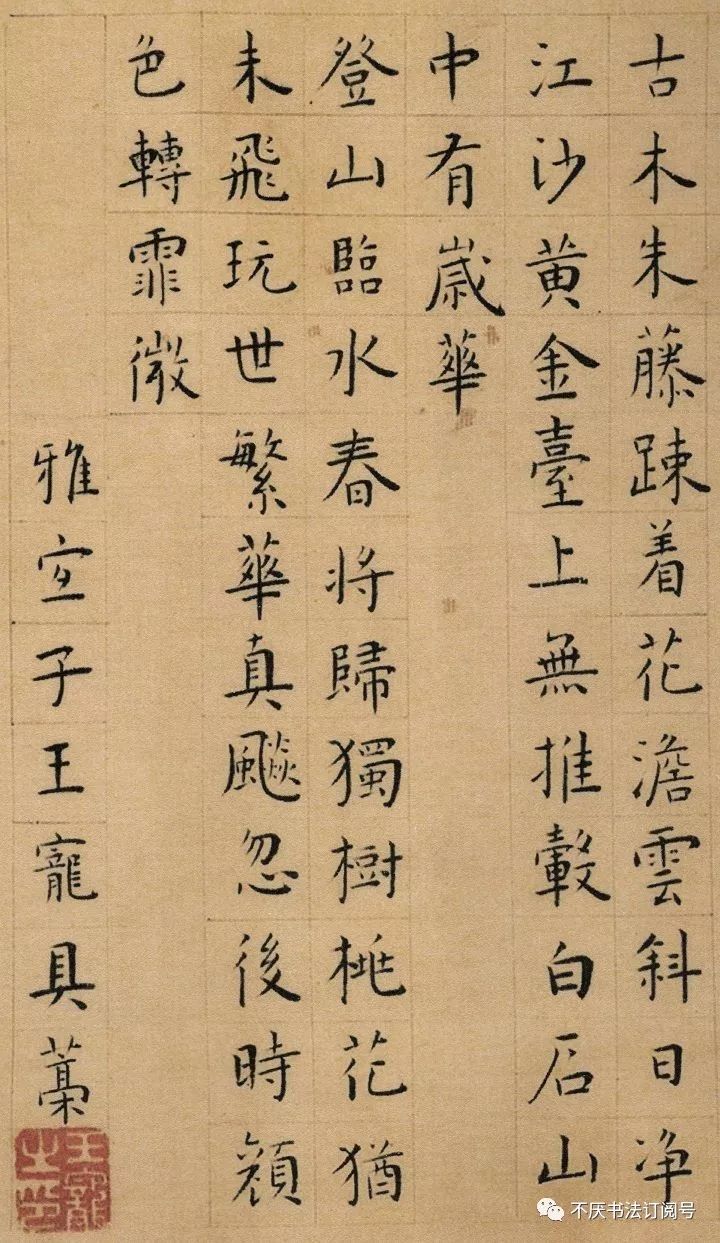 古木朱藤踈着花澹雲斜日净
江沙黄金臺上無推轂白石山
中有歲華
登山臨水春將歸獨樹桃花猶
未飛玩世繁華真飈忽後時顏
色轉霏微
雅宜子王寵具藁
不厌书法订阅号